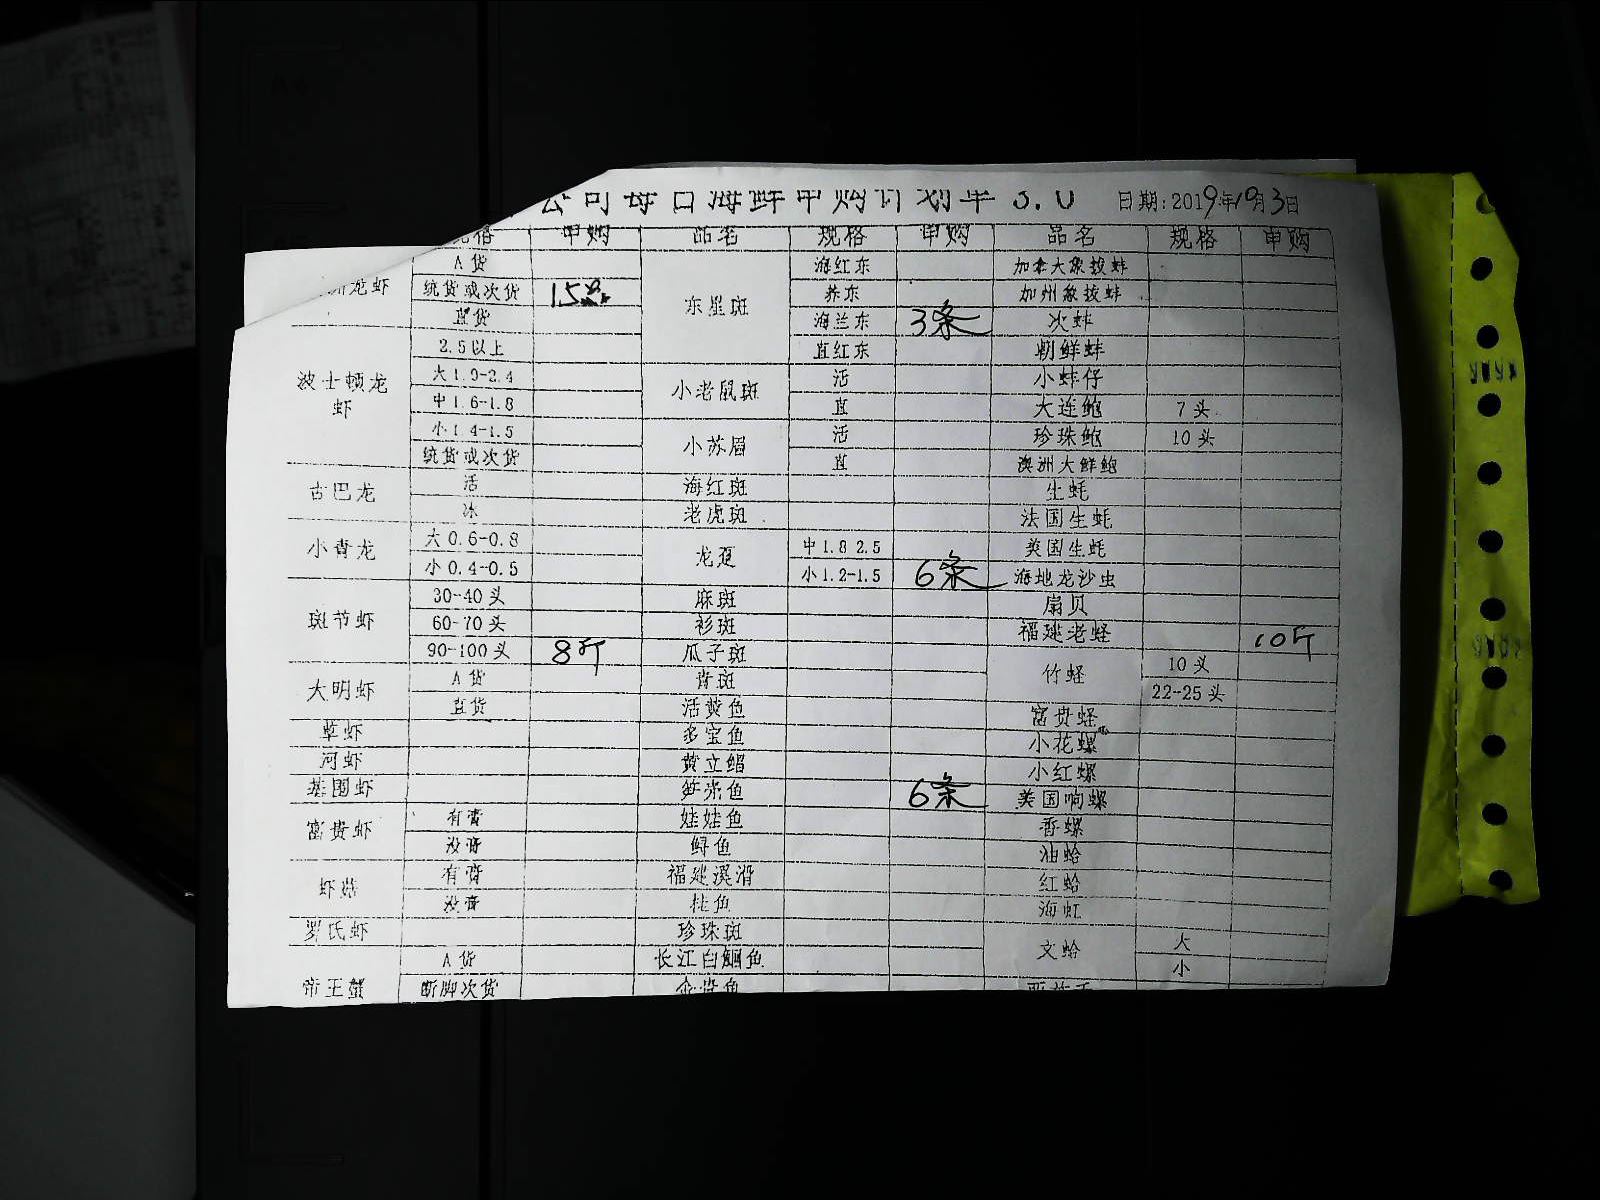 公司每日海鲜申购计划单3.0 日期:2019年10月3日
规格 申购 品名 规格 申购 品名 规格 申购
A货 海红东 加拿大象拔蚌
龙虾 统货或次货 东星斑 养东 加州象拔蚌
直货 海兰东 3条 次蚌
2.5以上 直红东 朝鲜蚌
波士顿龙虾 大1.9-2.4 小老鼠斑 活 小蚌仔
中1.6-1.8 直 大连鲍 7头
小1.4-1.5 小苏眉 活 珍珠鲍 10头
统货或次货 直 澳洲大鲜鲍
古巴龙 活 海红斑 生蚝
冰 老虎斑 法国生蚝
小青龙 大0.6-0.8 龙趸 中1.8 2.5 美国生蚝
小0.4-0.5 小1.2-1.5 6条 海地龙沙虫
斑节虾 30-40头 麻斑 扇贝
60-70头 杉斑 福建老蛏 10斤
90-100头 8斤 瓜子斑 竹蛏 10头
大明虾 A货 青斑 22-25头
直货 活黄鱼 富贵蛏
草虾 多宝鱼 小花螺
河虾 黄立鲳 小红螺
基围虾 笋壳鱼 6条 美国响螺
富贵虾 有膏 娃娃鱼 香螺
没膏 鲟鱼 油蛤
虾菇 有膏 福建溪滑 红蛤
没膏 桂鱼 海虹
罗氏虾 珍珠斑 文蛤 大
A货 长江白鮰鱼 小
帝王蟹 断脚次货